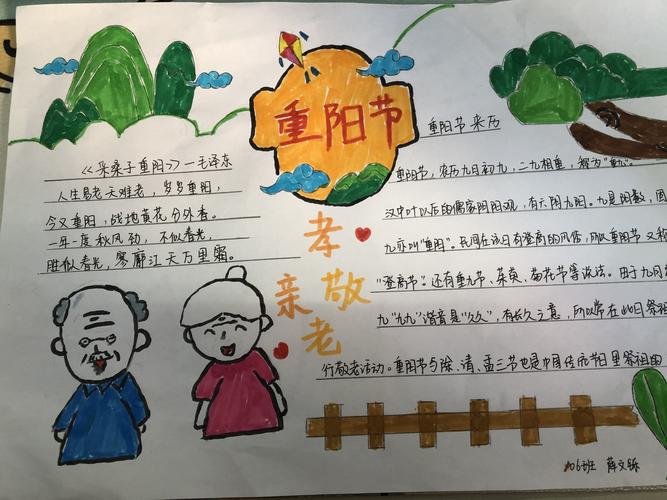 重阳节
《采桑子重阳》一毛泽东
人生易老天难老，岁岁重阳，
今又重阳，战地黄花分外香。
一年一度秋风劲，不似春光，
胜似春光，寥廓江天万里霜。
孝
亲敬
老
重阳节来历
重阳节，农历九月初九，二九相重，称为"重九"。
汉中叶以后的儒家阴阳观，有六阴九阳。九是阳数，固
九亦叫"重阳"。民间在该日有登高的风俗，所以重阳节又称
"登高节"。还有重九节、茱萸、菊花节等说法。由于九月初
九"九九"谐音是"久久"，有长久之意，所以常在此日祭祖
行敬老活动。重阳节与除、清、孟三节也是中国传统节日里祭祖的
06班 薛文铄